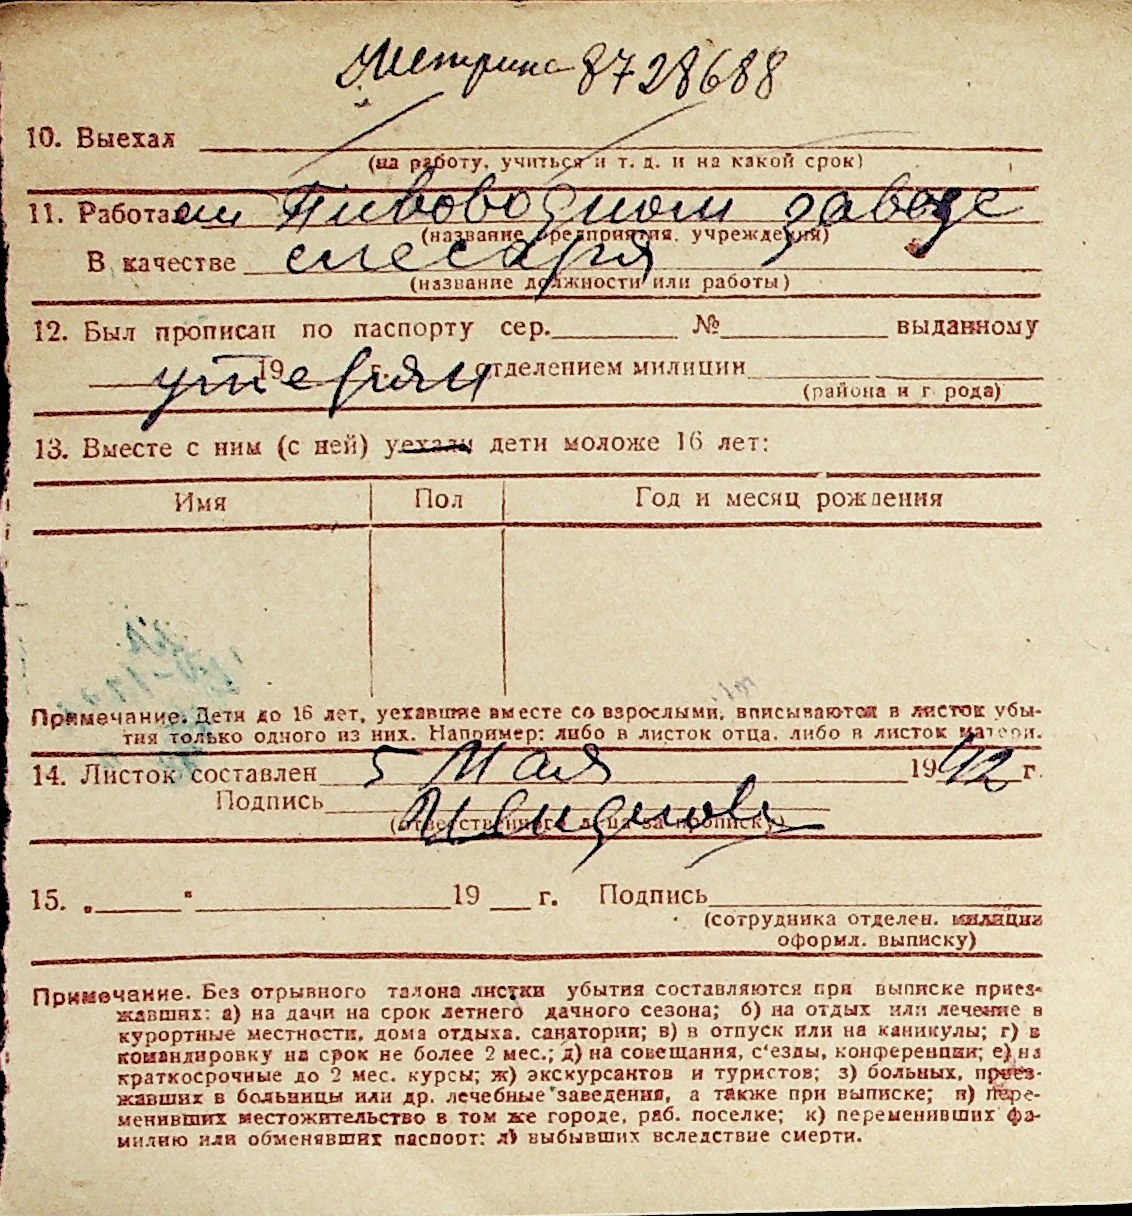 Метрика 8728688
10. Выехал
(на работу, учиться и т. д. и на какой срок)
11. Работал Пивоводном заводе
(название предприятия, учреждения)
В качестве слесаря
(название должности или работы)
12. Был прописан по паспорту сер. № выданному
утерян 19 г. отделением милиции
(района и города)
13. Вместе с ним (с ней) уехали дети моложе 16 лет:
Имя Пол Год и месяц рождения
Примечание. Дети до 16 лет, уехавшие вместе со взрослыми, вписываются в листок убы-
тия только одного из них. Например: либо в листок отца, либо в листок матери.
14. Листок составлен 5 Мая 1942 г.
Подпись
(ответственного лица за прописку)
15. „ " 19 г. Подпись
(сотрудника отделен. милиции
оформл. выписку)
Примечание. Без отрывного талона листки убытия составляются при выписке приез-
жавших: а) на дачи на срок летнего дачного сезона; б) на отдых или лечение в
курортные местности, дома отдыха, санатории; в) в отпуск или на каникулы; г) в
командировку на срок не более 2 мес.; д) на совещания, с'езды, конференции; е) на
краткосрочные до 2 мес. курсы; ж) экскурсантов и туристов; з) больных, приез-
жавших в больницы или др. лечебные заведения, а также при выписке; и) пере-
менивших местожительство в том же городе, раб. поселке; к) переменивших фа-
милию или обменявших паспорт; л) выбывших вследствие смерти.